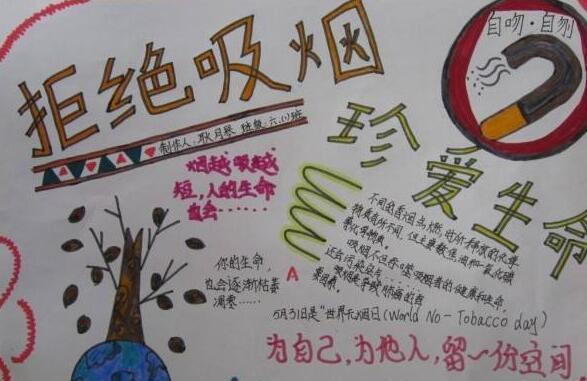 拒绝吸烟
自吻·自刎
制作人:耿月琴 班级:六.(1)班
珍爱生命
烟越吸越
短,人的生命
也会……
不同的香烟点燃时所释放的化学
物质有所不同,但主要数焦油和一氧化碳
等化学物质。
吸烟不但吞噬吸烟者的健康和生命,
还会污染空气……
吸烟是导致肺病的首
要因素。
你的生命,
也会逐渐枯萎
凋零……
A
5月31日是"世界无烟日(World No-Tobacco day)
为自己,为他人,留一份空间